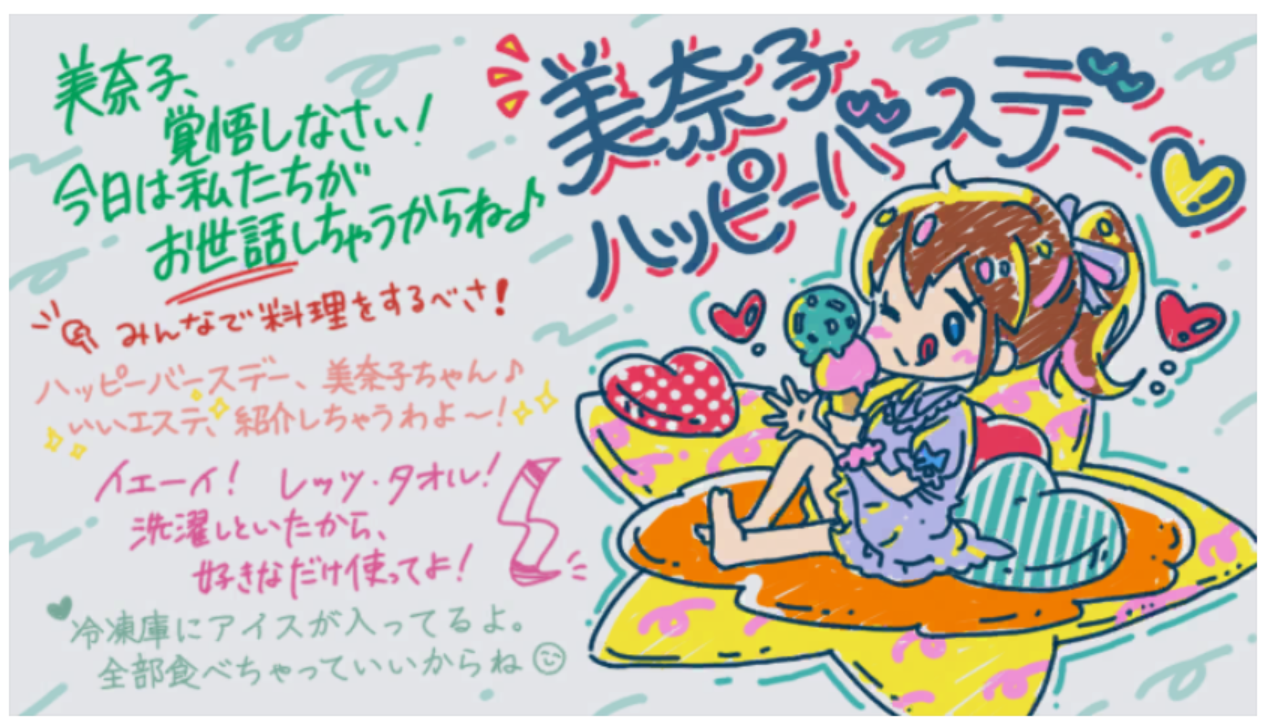 美奈子、
覚悟しなさい！
今日は私たちが
お世話しちゃうからね♪
みんなで料理をするべさ！
ハッピーバースデー、美奈子ちゃん♪
いいエステ、紹介しちゃうわよ～！
イエーイ！ レッツ・タオル！
洗濯しといたから、
好きなだけ使ってよ！
冷凍庫にアイスが入ってるよ。
全部食べちゃっていいからね
美奈子
ハッピーバースデー